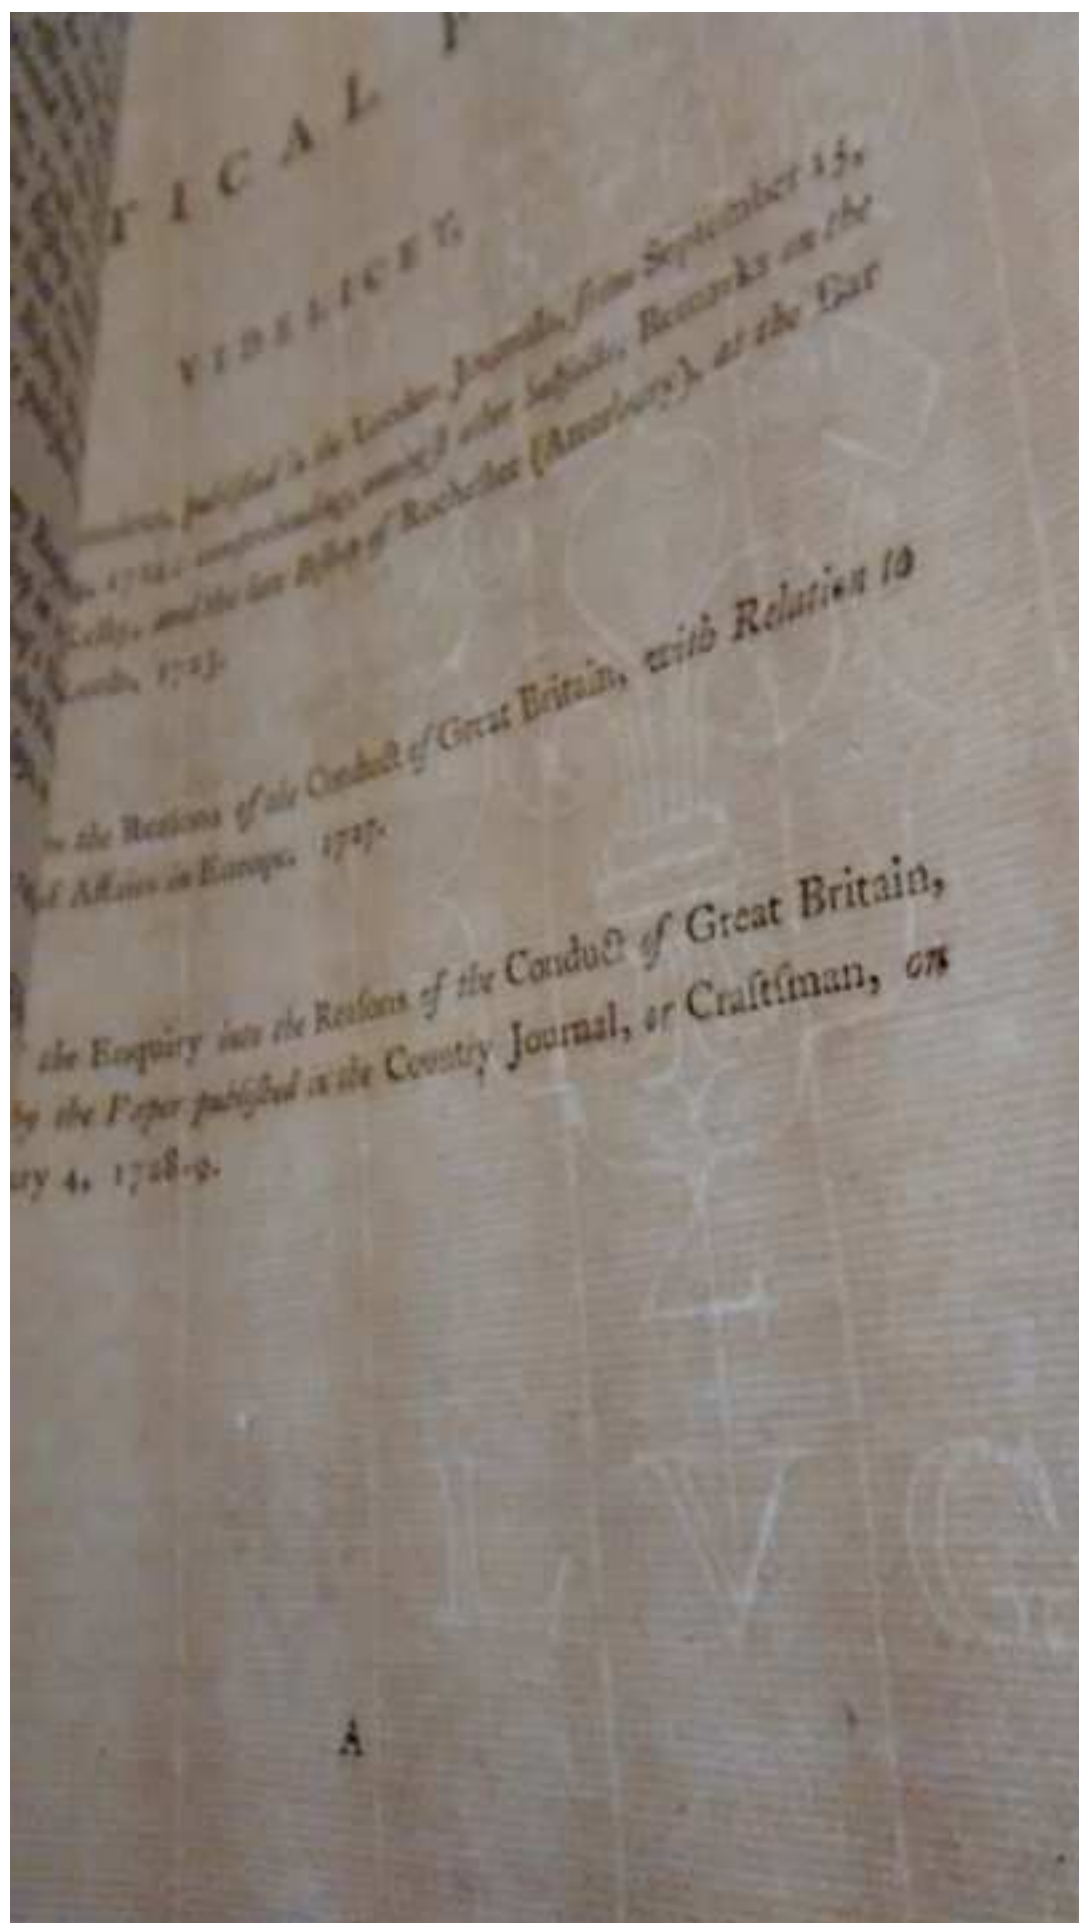 TICAL
VIDELICET,
published in the London Journals, from September 15,
1724; comprehending, amongst other Subjects, Remarks on the
Kelly, and the late Bishop of Rochester (Atterbury), at the Bar
Lords, 1723.
the Reasons of the Conduct of Great Britain, with Relation to
of Affairs in Europe. 1727.
the Enquiry into the Reasons of the Conduct of Great Britain,
by the Paper publiſhed in the Country Journal, or Craftſman, on
ary 4, 1728-9.
LVG
A